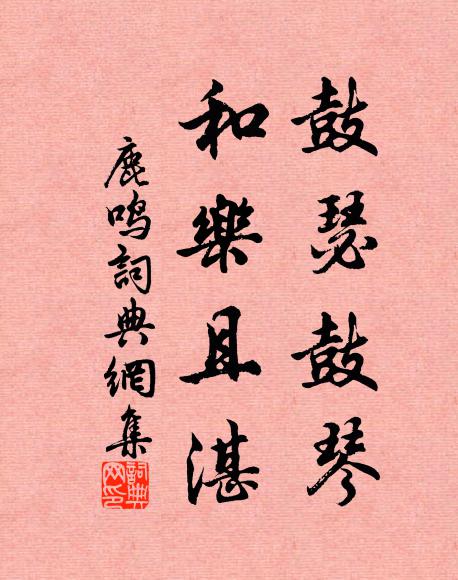 鼓瑟鼓琴
和樂且湛
鹿鳴詞典網集
詞典网印